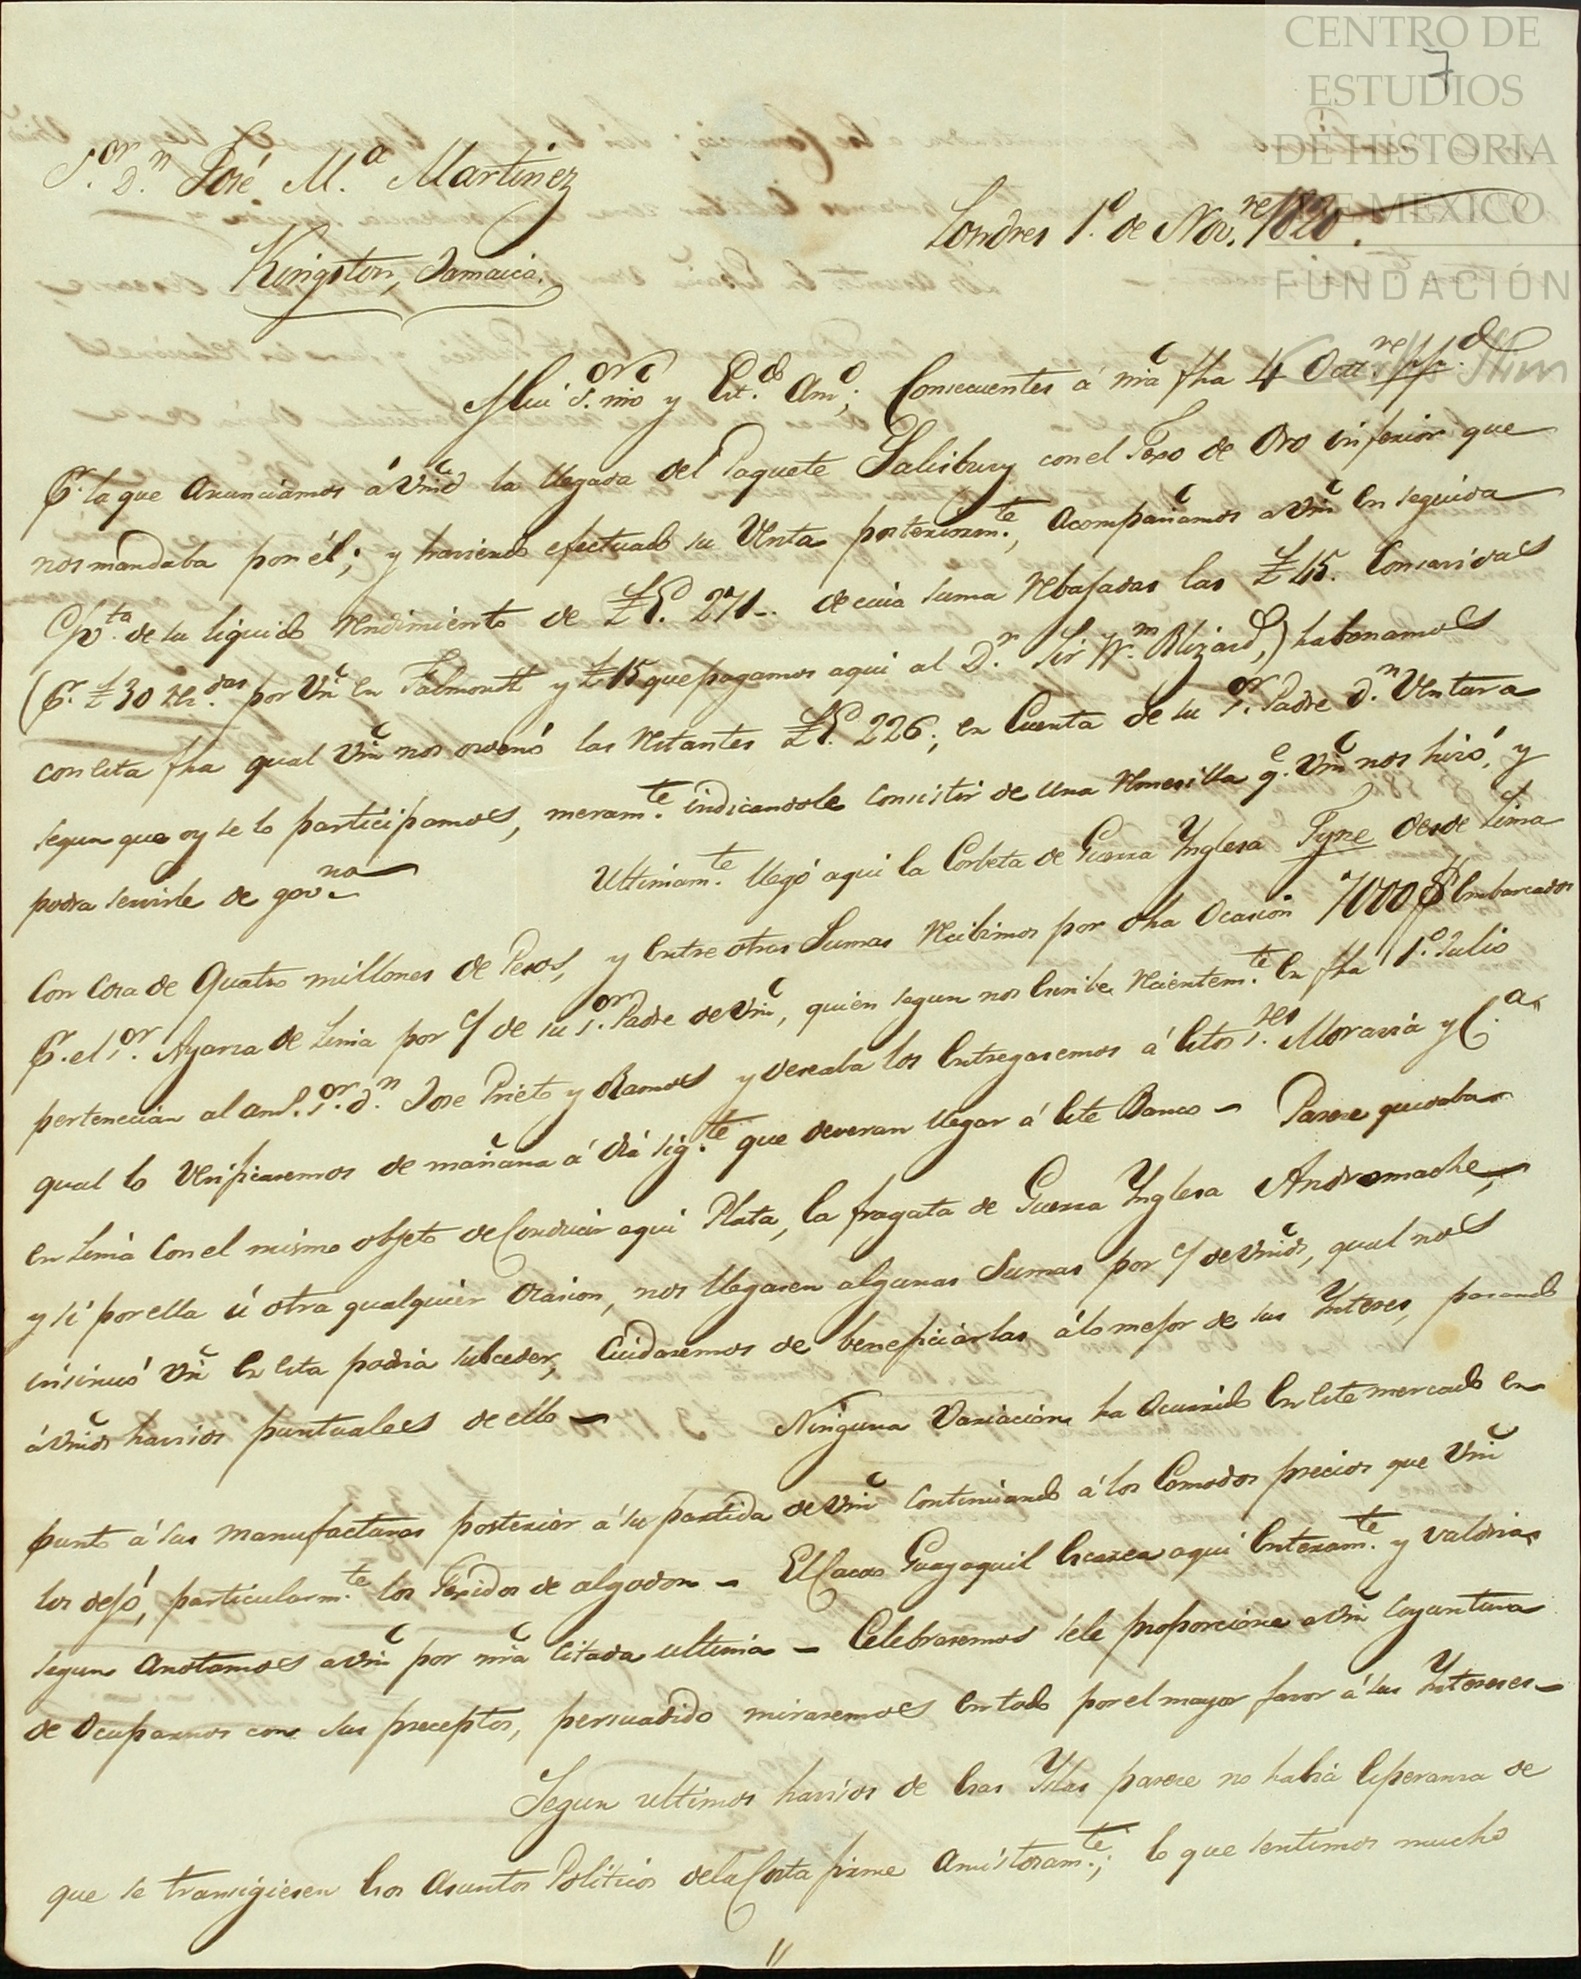 CENTRO DE
ESTUDIOS
DE HISTORIA
DE MEXICO
FUNDACIÓN
7
S.or D.n José M.a Martinez
Kingston, Jamaica.
Londres 1.o de Nov.re 1820.
Mui S.or mio y Est.do Am.o; Consecuentes á nra fha 4 Oct.re pp.do
Pr. la que anunciamos á Vmd la llegada del Paquete Salisbury con el Texo de Oro inferior que
nos mandaba por él; y haviendo efectuado su Venta posteriorm.te, acompañamos a Vm en seguida
C/v.ta de su liquido rendimiento de £E. 271.. de cuia suma rebajadas las £45. consavidas
(Pr. £30 re.das por Vm en Falmouth y £15 que pagamos aqui al D.r Sir W.m Blizard,) habonamos
con esta fha qual Vm nos ordenó las restantes £E. 226; en Cuenta de su S.or Padre D.n Ventura
segun que oy se lo participamos, meram.te indicandole consistir de una remesilla q.e Vm nos hizo, y
podra servirle de gov.no Ultimam.te llegó aqui la Corbeta de Guerra Ynglesa Tyne desde Lima
con cosa de quatro millones de Pesos, y entre otras Sumas recibimos por dha Ocasion 7000 $ embarcados
Pr. el S.or Ayarza de Lima por C/ de su S.or Padre de Vm, quien segun nos escribe recientem.te en fha 1.o Julio
pertenecian al am.o S.or D.n Jose Prieto y Ramos y deseaba los entregasemos á estos S.res Morassá y C.a
qual lo verificaremos de mañana á dia sig.te que deveran llegar á este Banco - Parece quedaba
en Lima con el mismo objeto de Conducir aqui Plata, la fragata de Guerra Ynglesa Andromache,
y si por ella ú otra qualquier Ocasion, nos llegasen algunas Sumas por C/ de Vmds, qual nos
insinuó Vm en esta podria subceder, cuidaremos de beneficiarlas á lo mejor de sus Ynteres, pasando
á Vmds havisos puntuales de ello - Ninguna Variacion ha ocurrido en este mercado en
punto á sus manufacturas posterior á su partida de Vm continuando á los Comodos precios que Vm
los dejó, particularm.te los Texidos de algodon - El Cacao Guayaquil escasea aqui enteram.te y valdria
segun anotamos a Vm por nra citada ultima - Celebraremos se le proporcione a Vm coyuntura
de Ocuparnos con sus preceptos, persuadido miraremos en todo por el mayor favor á sus Yntereses -
Segun ultimos havisos de esas Yslas parece no habia esperanza de
que se transigiesen los Asuntos Politicos de la Costa firme amistosam.te; lo que sentimos mucho
//